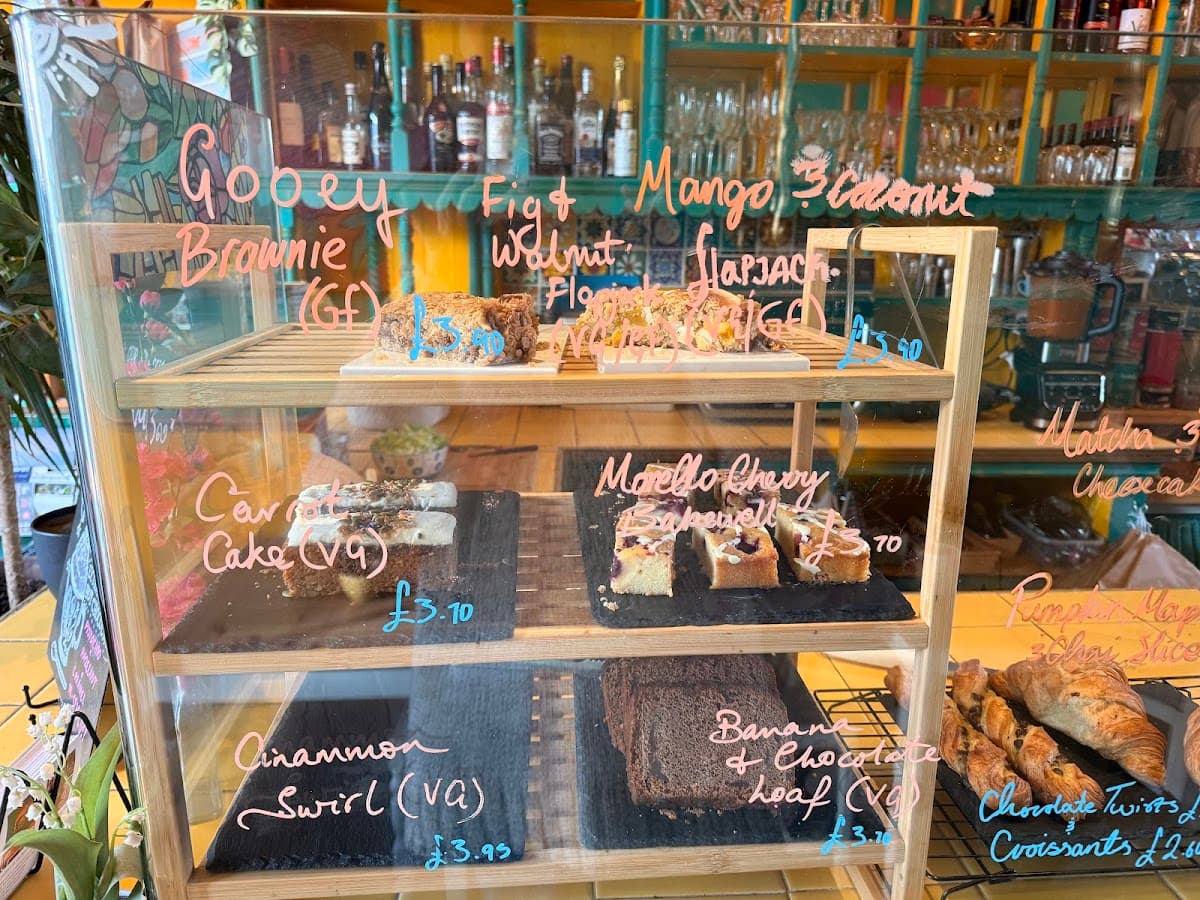 Gooey
Brownie
(Gf)
£3.90
Fig &
Walnut
Florentine
Mango & Coconut
flapJACK
(Vg/Gf)
£3.90
Carrot
Cake (VG)
£3.70
Morello Cherry
Bakewell
£3.70
Matcha &
Pumpkin
& Chai Slice
Cinammon
Swirl (VG)
£3.95
Banana
& Chocolate
Loaf (VG)
£3.70
Chocolate Twists
&
Croissants